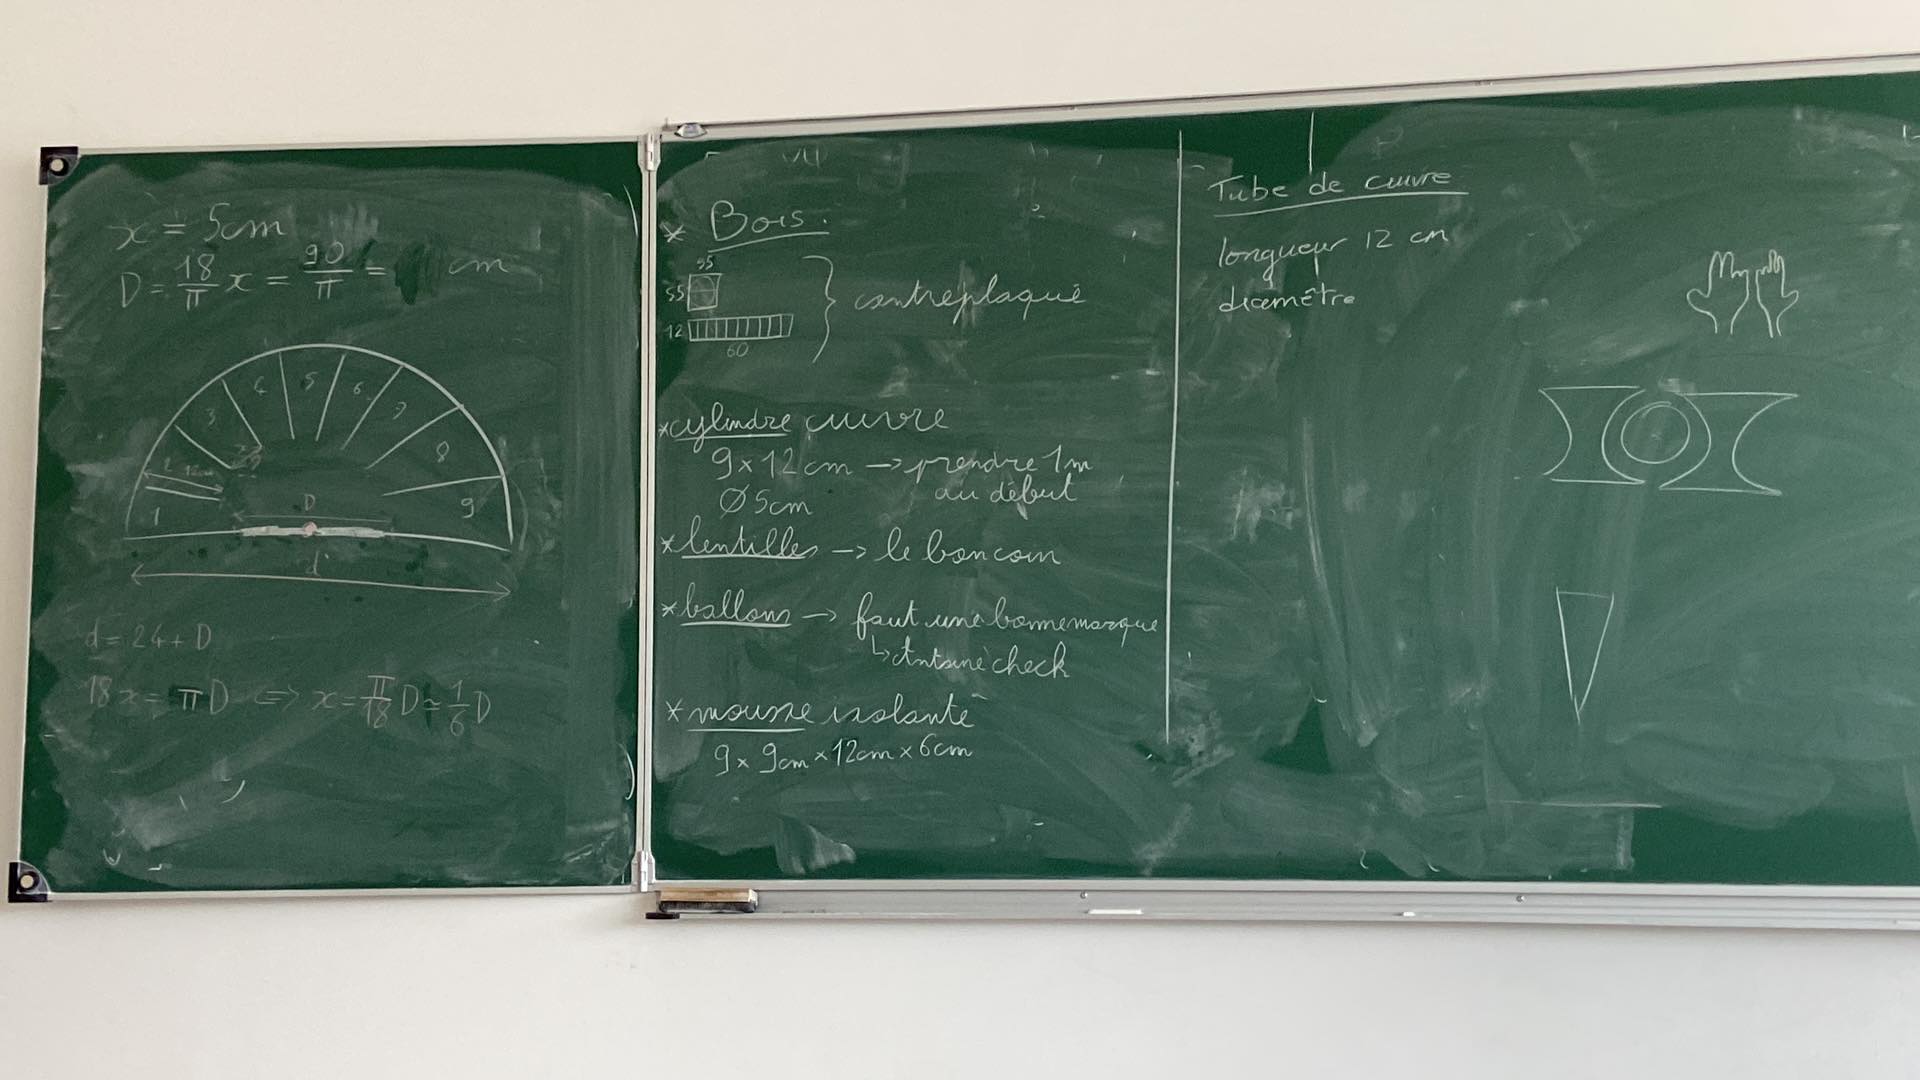 x = 5cm
D = 18/π x = 90/π = cm
1 2 3 4 5 6 7 8 9
12cm
D
d
d = 24 + D
18x = πD <=> x = π/18 D ≃ 1/6 D
* Bois.
55
55
12
60
contreplaqué
* cylindre cuivre
9 x 12 cm → prendre 1m
Ø 5cm au début
* lentilles → le boncoin
* ballons → faut une bonne marque
↳ Antoine check
* mousse isolante
9 x 9cm x 12cm x 6cm
Tube de cuivre
longueur 12 cm
diamètre